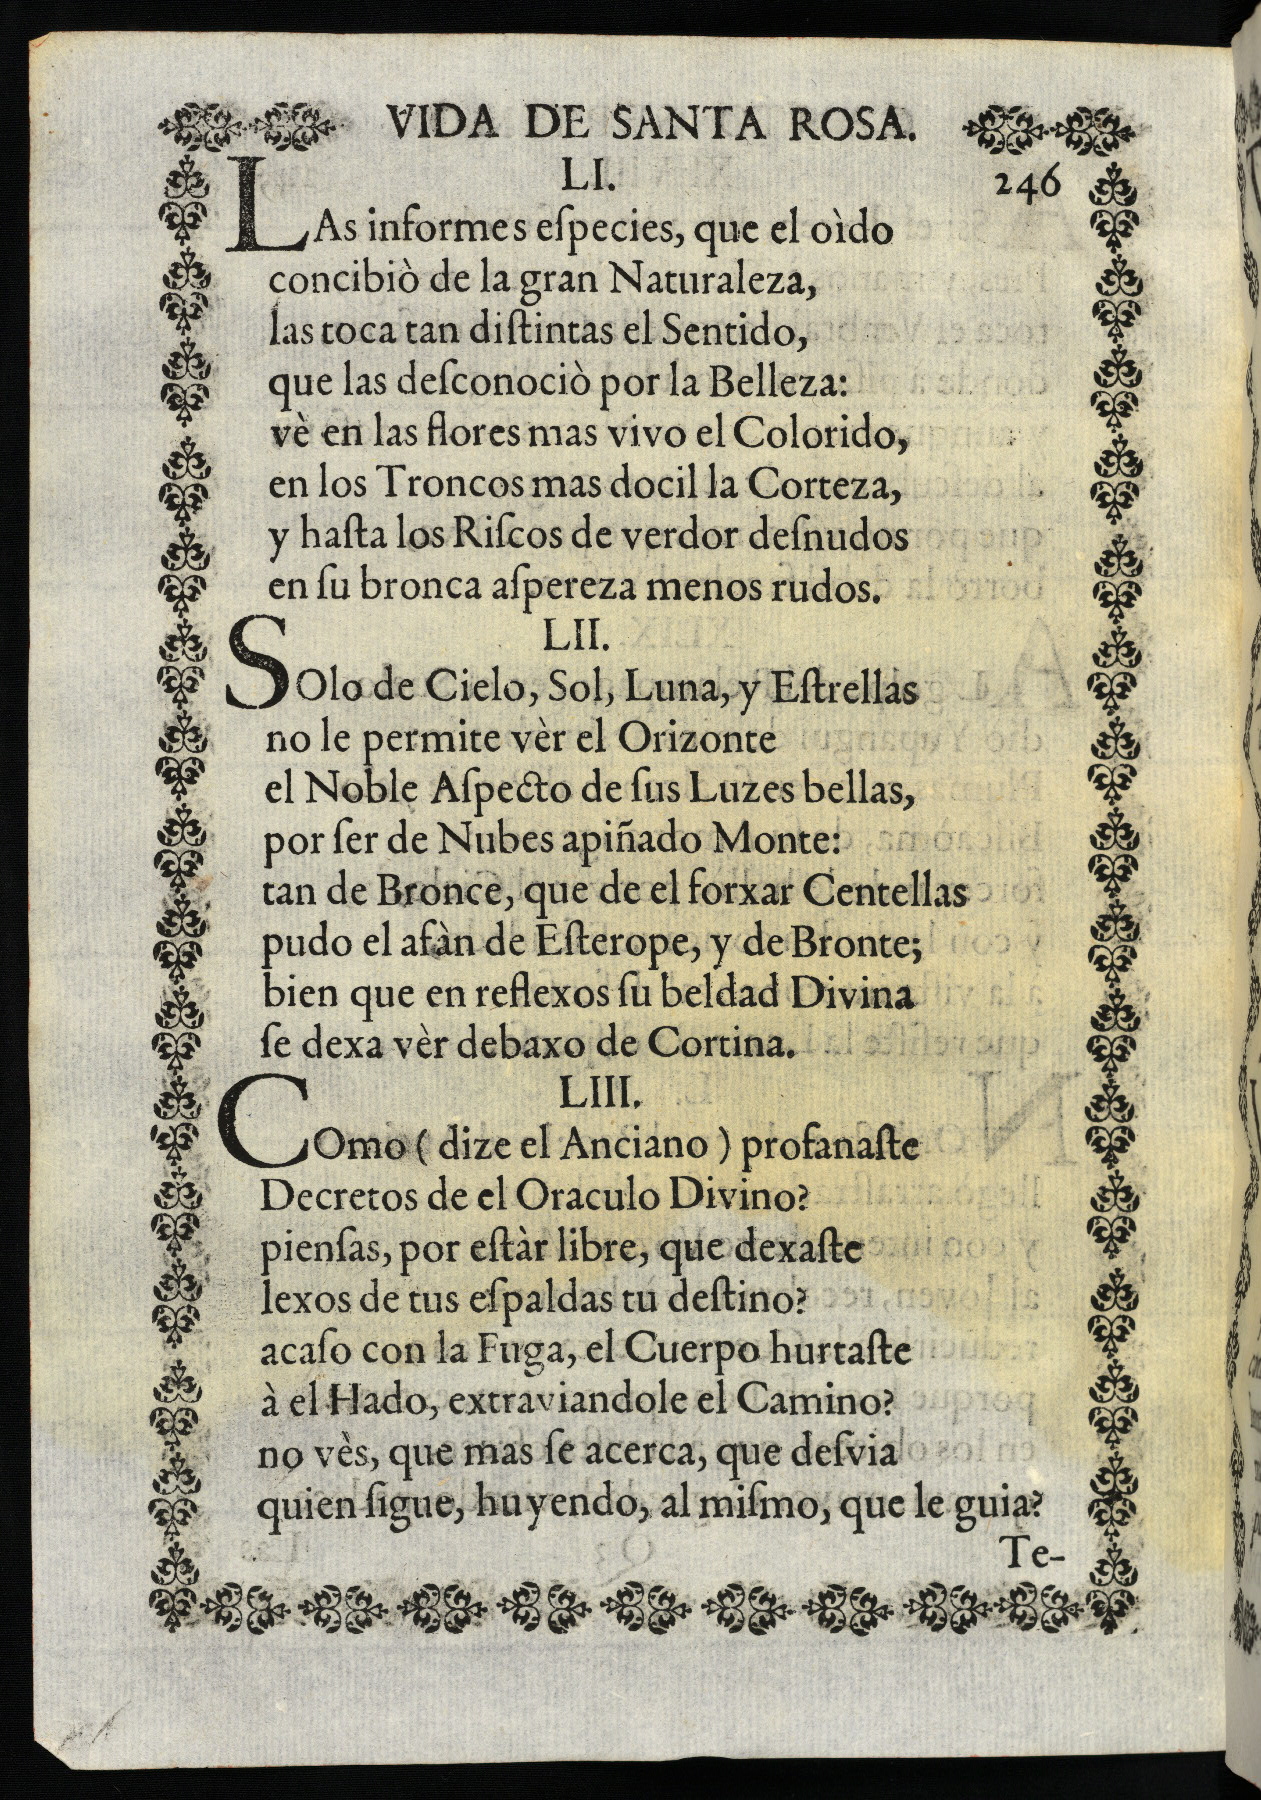 VIDA DE SANTA ROSA.
LI.
246
LAs informes eſpecies, que el oìdo
concibiò de la gran Naturaleza,
las toca tan diſtintas el Sentido,
que las deſconociò por la Belleza:
vè en las flores mas vivo el Colorido,
en los Troncos mas docil la Corteza,
y haſta los Riſcos de verdor deſnudos
en ſu bronca aſpereza menos rudos.
LII.
SOlo de Cielo, Sol, Luna, y Eſtrellas
no le permite vèr el Orizonte
el Noble Aſpecto de ſus Luzes bellas,
por ſer de Nubes apiñado Monte:
tan de Bronce, que de el forxar Centellas
pudo el afàn de Eſterope, y de Bronte;
bien que en reflexos ſu beldad Divina
ſe dexa vèr debaxo de Cortina.
LIII.
COmo ( dize el Anciano ) profanaſte
Decretos de el Oraculo Divino?
pienſas, por eſtàr libre, que dexaſte
lexos de tus eſpaldas tu deſtino?
acaſo con la Fuga, el Cuerpo hurtaſte
à el Hado, extraviandole el Camino?
no vès, que mas ſe acerca, que deſvia
quien ſigue, huyendo, al miſmo, que le guia?
Te-